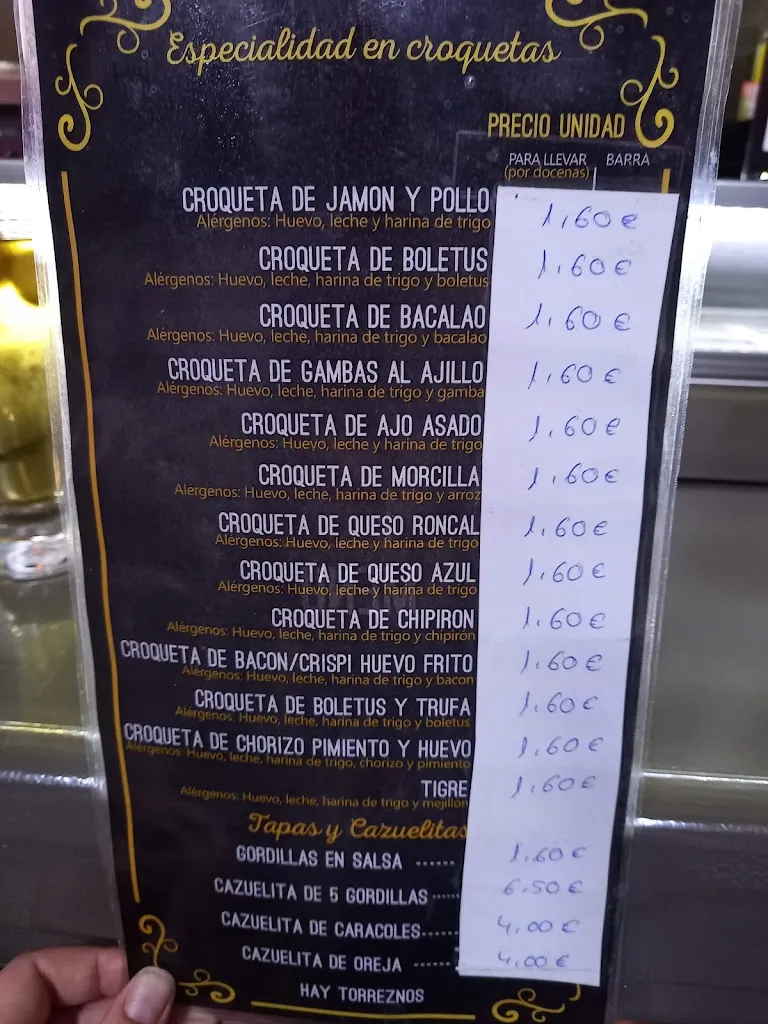 Especialidad en croquetas
PRECIO UNIDAD
PARA LLEVAR BARRA
(por docenas)
CROQUETA DE JAMON Y POLLO 1,60 €
Alérgenos: Huevo, leche y harina de trigo
CROQUETA DE BOLETUS 1.60 €
Alérgenos: Huevo, leche, harina de trigo y boletus
CROQUETA DE BACALAO 1.60 €
Alérgenos: Huevo, leche, harina de trigo y bacalao
CROQUETA DE GAMBAS AL AJILLO 1.60 €
Alérgenos: Huevo, leche, harina de trigo y gamba
CROQUETA DE AJO ASADO 1.60 €
Alérgenos: Huevo, leche y harina de trigo
CROQUETA DE MORCILLA 1.60 €
Alérgenos: Huevo, leche, harina de trigo y arroz
CROQUETA DE QUESO RONCAL 1.60 €
Alérgenos: Huevo, leche y harina de trigo
CROQUETA DE QUESO AZUL 1.60 €
Alérgenos: Huevo, leche y harina de trigo
CROQUETA DE CHIPIRON 1.60 €
Alérgenos: Huevo, leche, harina de trigo y chipirón
CROQUETA DE BACON/CRISPI HUEVO FRITO 1.60 €
Alérgenos: Huevo, leche, harina de trigo y bacon
CROQUETA DE BOLETUS Y TRUFA 1.60 €
Alérgenos: Huevo, leche, harina de trigo y boletus
CROQUETA DE CHORIZO PIMIENTO Y HUEVO 1.60 €
Alérgenos: Huevo, leche, harina de trigo, chorizo y pimiento
TIGRE 1.60 €
Alérgenos: Huevo, leche, harina de trigo y mejillón
Tapas y Cazuelitas
GORDILLAS EN SALSA ...... 1.60 €
CAZUELITA DE 5 GORDILLAS ...... 6.50 €
CAZUELITA DE CARACOLES...... 4.00 €
CAZUELITA DE OREJA ...... 4.00 €
HAY TORREZNOS